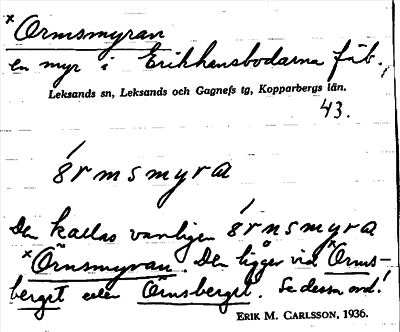 ×Ormsmyran
en myr i Erikhansbodarna fäb.,
Leksands sn, Leksands och Gagnefs tg, Kopparbergs län.
43.
órmsmyra
Den kallas vanligen órnsmyra
×Örnsmyran. Den ligger vid ×Orms-
berget eller Örnsberget. Se dessa ord!
ERIK M. CARLSSON, 1936.